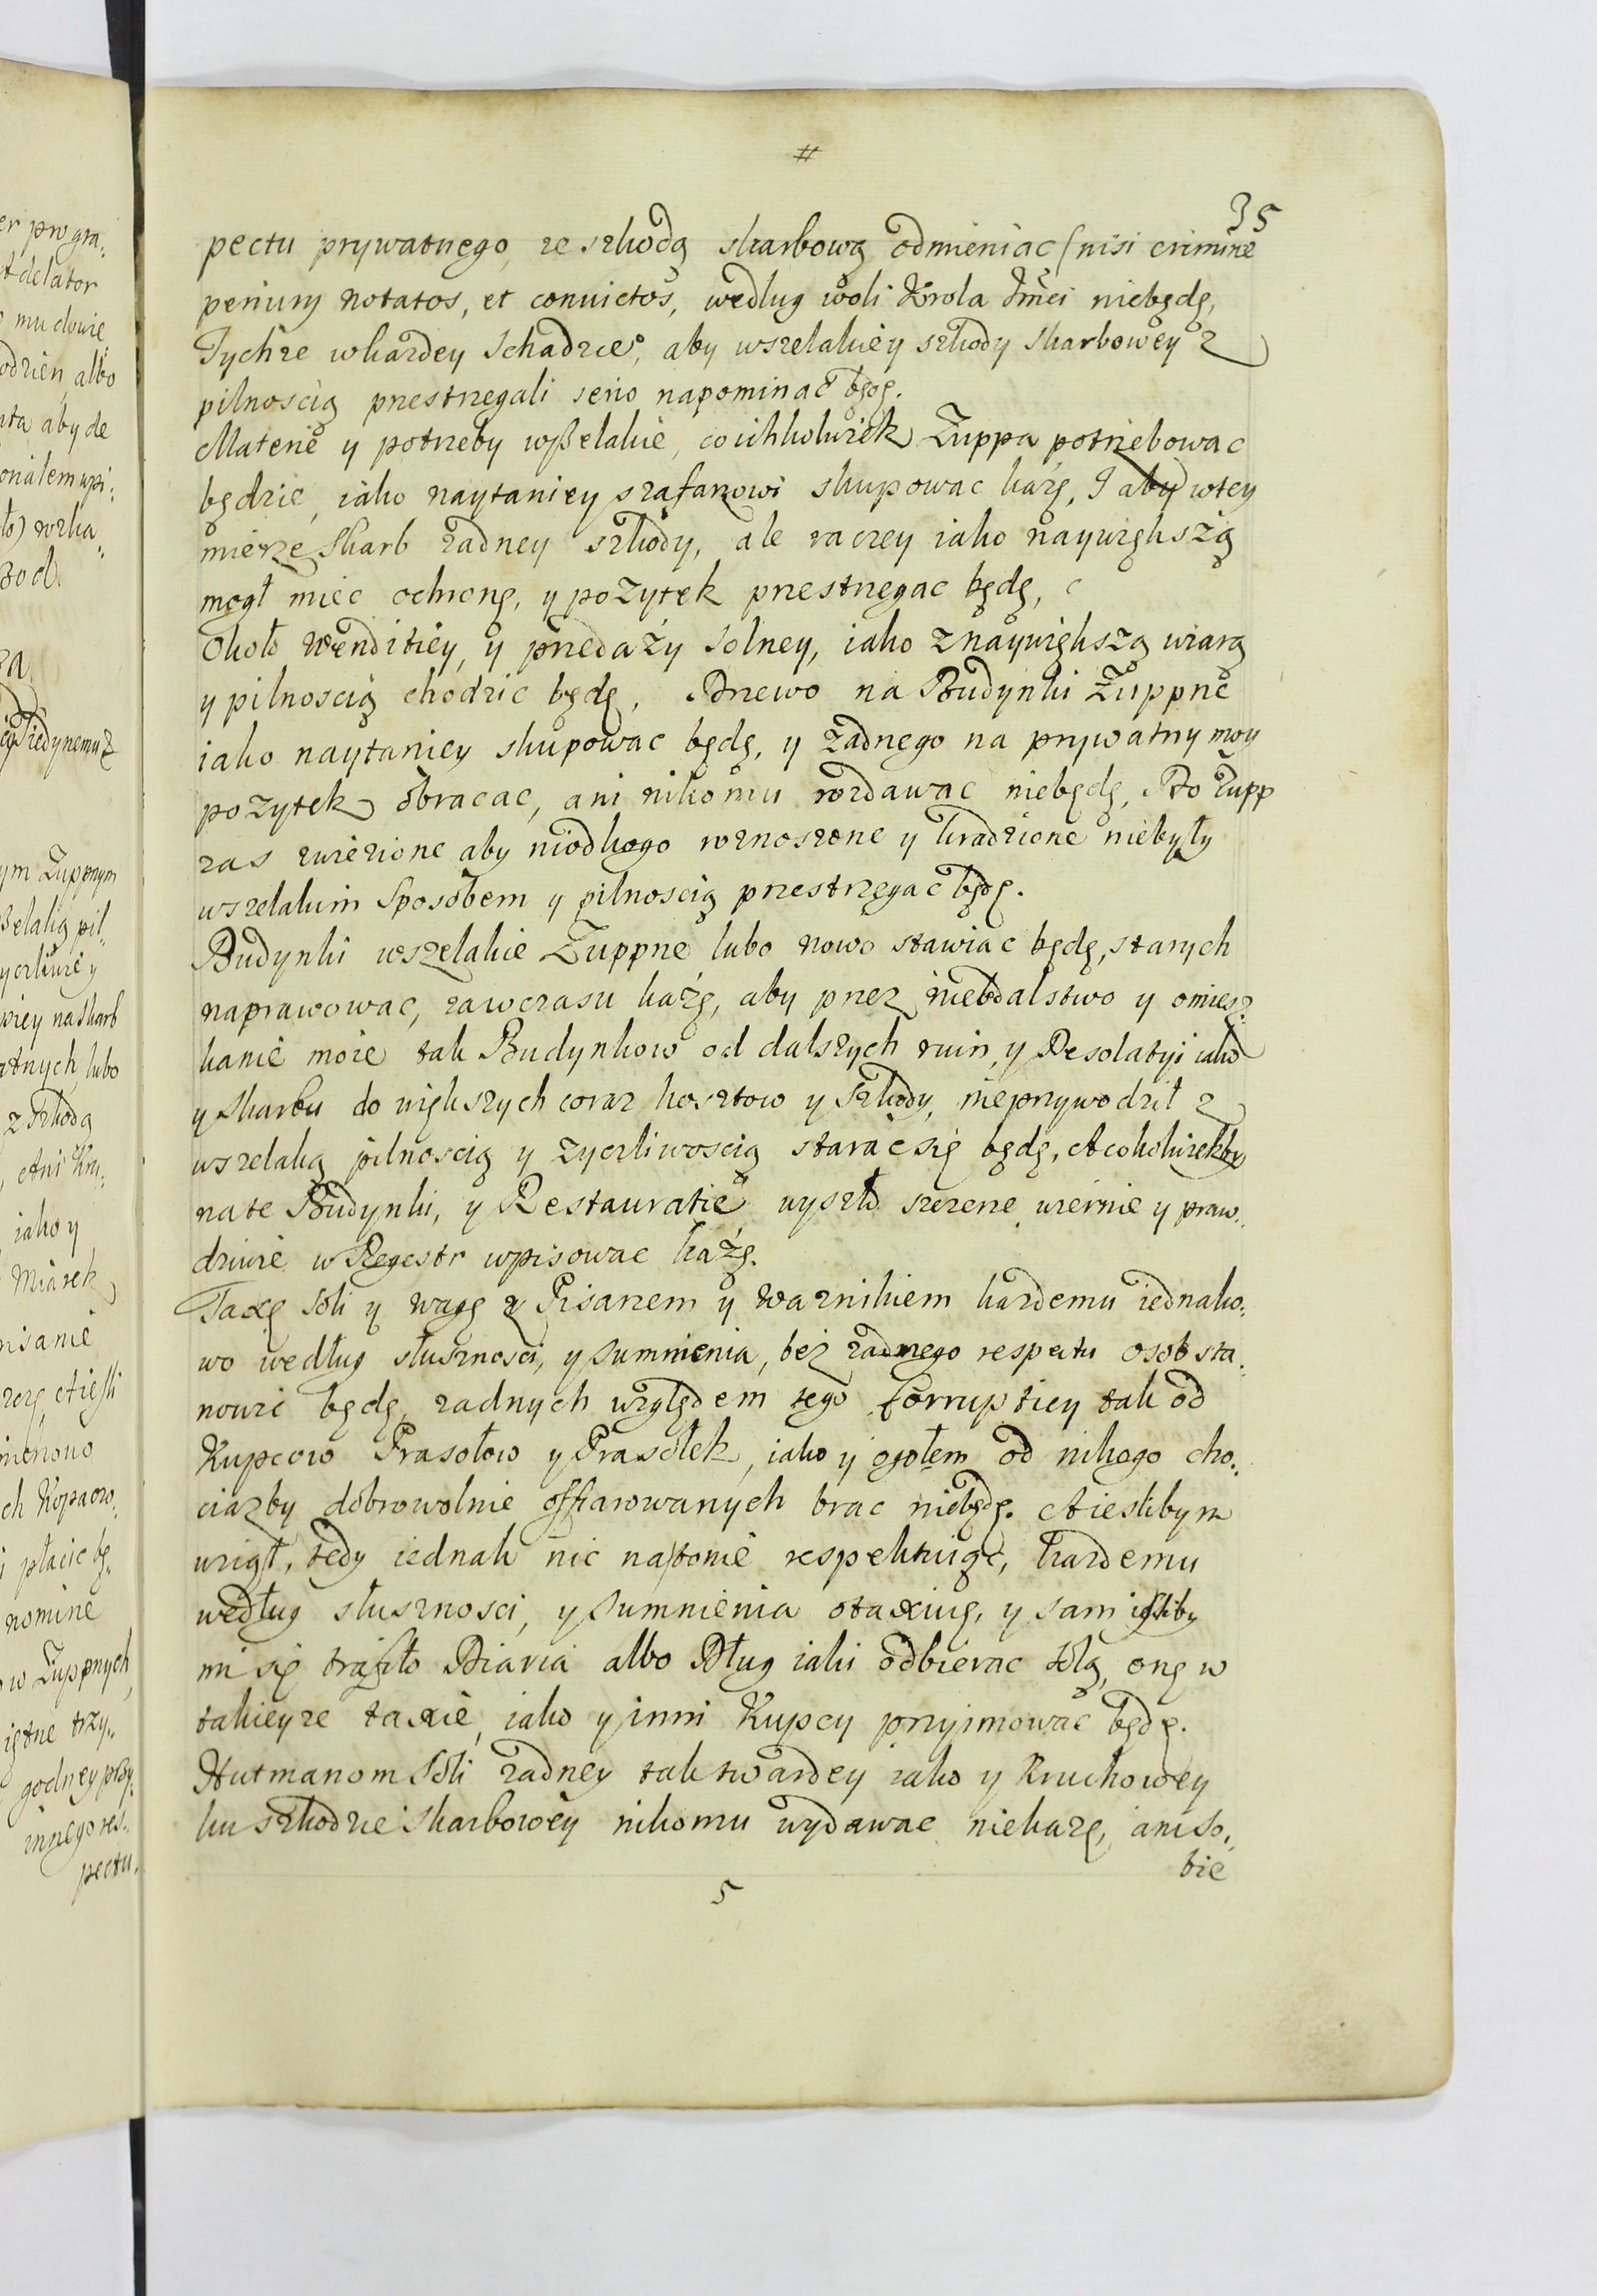 #
35
pectu prywatnego, ze szkodą skarbową odmieniac (nisi crimine
periurij notatos, et convictos, według woli Krola Jmci niebędę,
Tychze wkazdey schadzce, aby wszelakiey szkody skarbowey z
pilnoscią przestrzegali serio napominać będę.
Materie y potrzeby wßelakie, coichkolwiek Zuppa potrzebowac
będzie, iako naytaniey szafarzowi skupowac każę, I aby wtey
mierze skarb zadney szkody, ale raczey iako naywiększą
mogł miec ochronę, y pożytek przestrzegac będę,
Około Wenditiey, y przedaży solney, iako znaywiększą wiarą
y pilnoscią chodzic będę. Drzewo na Budynki Żuppne
iako naytaniey skupowac będę, y żadnego na prywatny moy
pożytek obracac, ani nikomu rozdawac niebędę, Do Zupp
zas zwiezione aby niodkogo roznoszone y kradzione niebyły
wszelakim sposobem y pilnoscią przestrzegać będę.
Budynki wszelakie Żuppne lubo nowo stawiac będę, starych
naprawowac, zawczasu każę, aby przez niedbalstwo y omiesz:
kanie moie tak Budynkow od dalszych ruin, y Desolatyi iako
y skarbu do większych coraz kosztow y szkody, nieprzywodził z
wszelaką pilnoscią y życzliwoscią starać się będę, Acokolwiekby
nate Budynki, y Restauratie wyszło szczerze wiernie y praw:
dziwie w Regestr wpisowac każę.
Taxę soli y wagę z Pisarzem y Warznikiem kazdemu iednako:
wo według słusznosci, y sumnienia, bez zadnego respectu osob sta:
nowic będę, zadnych względem tego Corruptiey tak od
Kupcow Prasołow y Prasołek, iako y ogołem od nikogo cho:
ciazby dobrowolnie offiarowanych brac niebędę. Aiesliby m
wziął, tedy iednak nic natonie respektuiąc, kazdemu
według słusznosci, y sumnienia otaxuię, y sam iesliby
mi się trafiło Diaria albo Dług iaki odbierac solą, onę w
takieyze taxie, iako y inni Kupcy przyimować będę.
Hutmanom soli zadney tak twardey iako y Kruchowey
ku szkodzie skarbowey nikomu wydawac niekażę, ani so:
bie
5
er progra:
delator
mu dowie
odzien, albo
aby de
zod
iedynemu z
ym Zuppnym
ßelaką pil:
na skarb
atnych, lubo
z szkodą
iako y
Miarek
nisanie
mieniono
płacic bę:
nomine
w Zuppnych
godney przy:
innego res:
pectu.